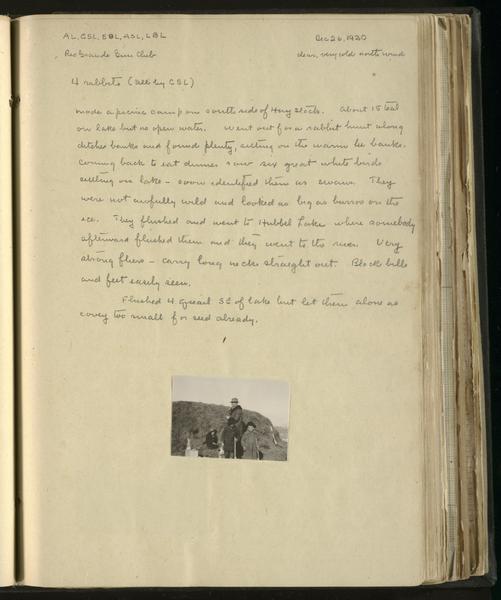 AL, CSL, EBL, ASL, LBL Dec 26, 1920
Rio Grande Gun Club clear, very cold north wind
4 rabbits (all by CSL)
made a picnic camp on south side of Hay stack. About 15 teal
on lake but no open water. Went out for a rabbit hunt along
ditches banks and found plenty, sitting on the warm lee banks.
Coming back to eat dinner saw six great white birds
sitting on lake - soon identified them as swans. They
were not awfully wild and looked as big as burros on the
ice. They flushed and went to Hubbel Lake where somebody
afterward flushed them and they went to the river. Very
strong fliers - carry long necks straight out. Black bills
and feet easily seen.
Flushed 4 quail S of lake but let them alone as
covey too small for seed already.